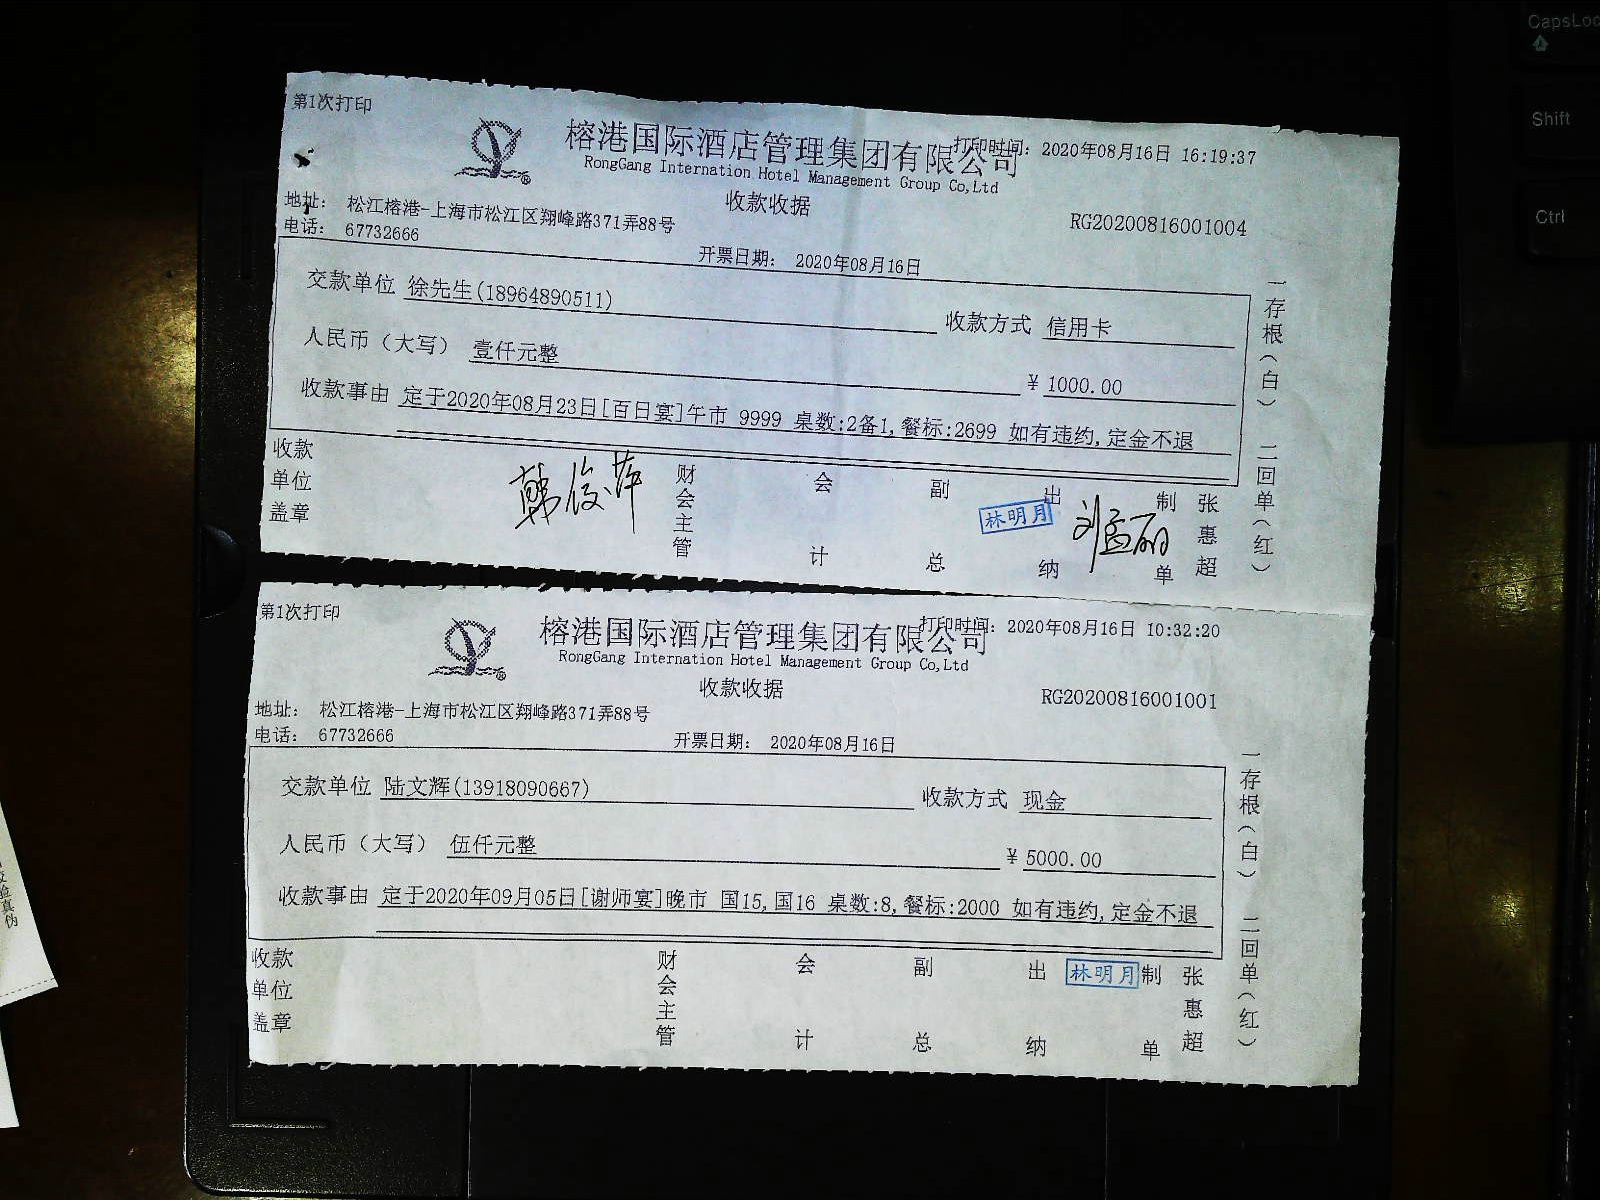 CapsLoc
Shift
Ctrl
第1次打印
榕港国际酒店管理集团有限公司
打印时间: 2020年08月16日 16:19:37
RongGang Internation Hotel Management Group Co,Ltd
收款收据
RG20200816001004
地址: 松江榕港-上海市松江区翔峰路371弄88号
电话: 67732666
开票日期: 2020年08月16日
交款单位 徐先生(18964890511)
收款方式 信用卡
人民币（大写） 壹仟元整
¥ 1000.00
收款事由 定于2020年08月23日[百日宴]午市 9999 桌数:2备1,餐标:2699 如有违约,定金不退
一存根（白） 二回单（红）
收款单位盖章
韩俊萍
财会主管
会计
副总
出纳
林明月
刘孟丽
制单
张惠超
第1次打印
榕港国际酒店管理集团有限公司
打印时间: 2020年08月16日 10:32:20
RongGang Internation Hotel Management Group Co,Ltd
收款收据
RG20200816001001
地址: 松江榕港-上海市松江区翔峰路371弄88号
电话: 67732666
开票日期: 2020年08月16日
交款单位 陆文辉(13918090667)
收款方式 现金
人民币（大写） 伍仟元整
¥ 5000.00
收款事由 定于2020年09月05日[谢师宴]晚市 国15,国16 桌数:8,餐标:2000 如有违约,定金不退
一存根（白） 二回单（红）
收款单位盖章
财会主管
会计
副总
出纳
林明月
制单
张惠超
验真伪